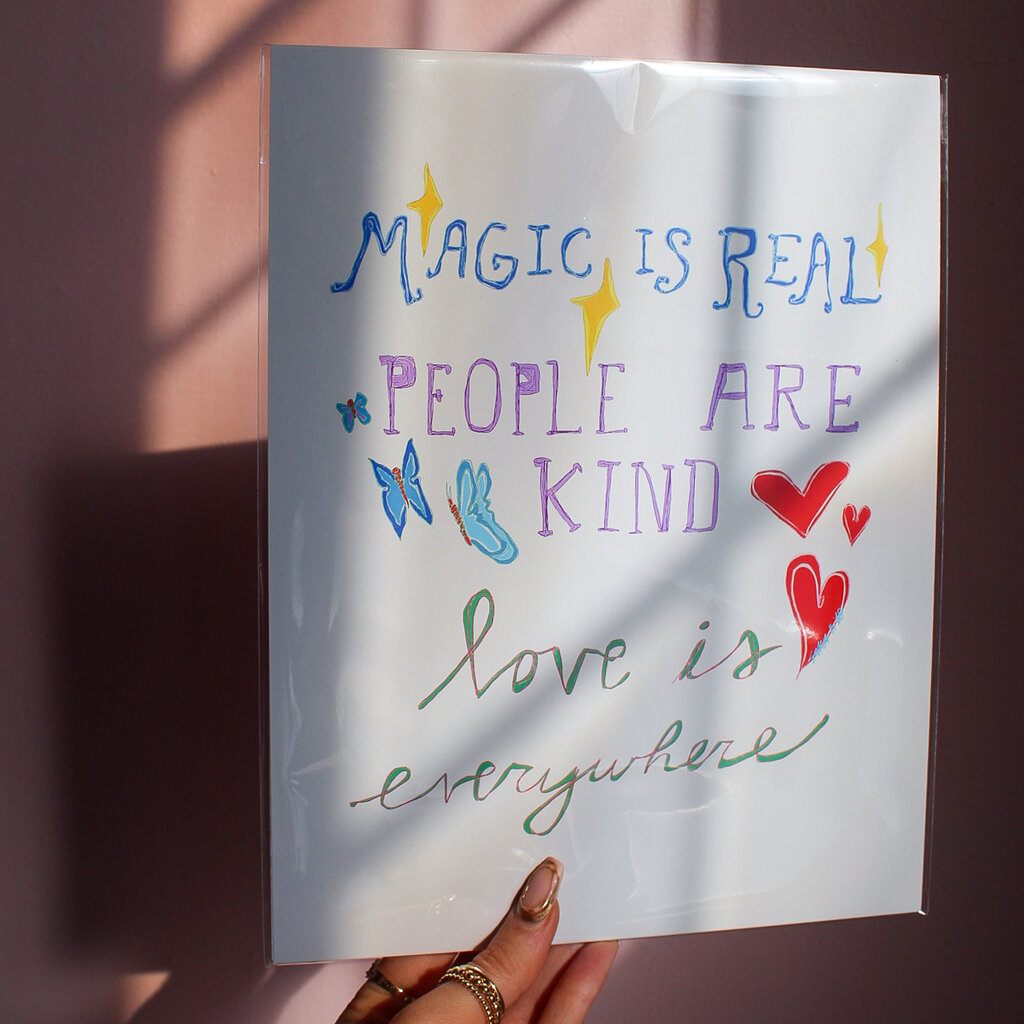 MAGIC IS REAL
PEOPLE ARE
KIND
love is
everywhere